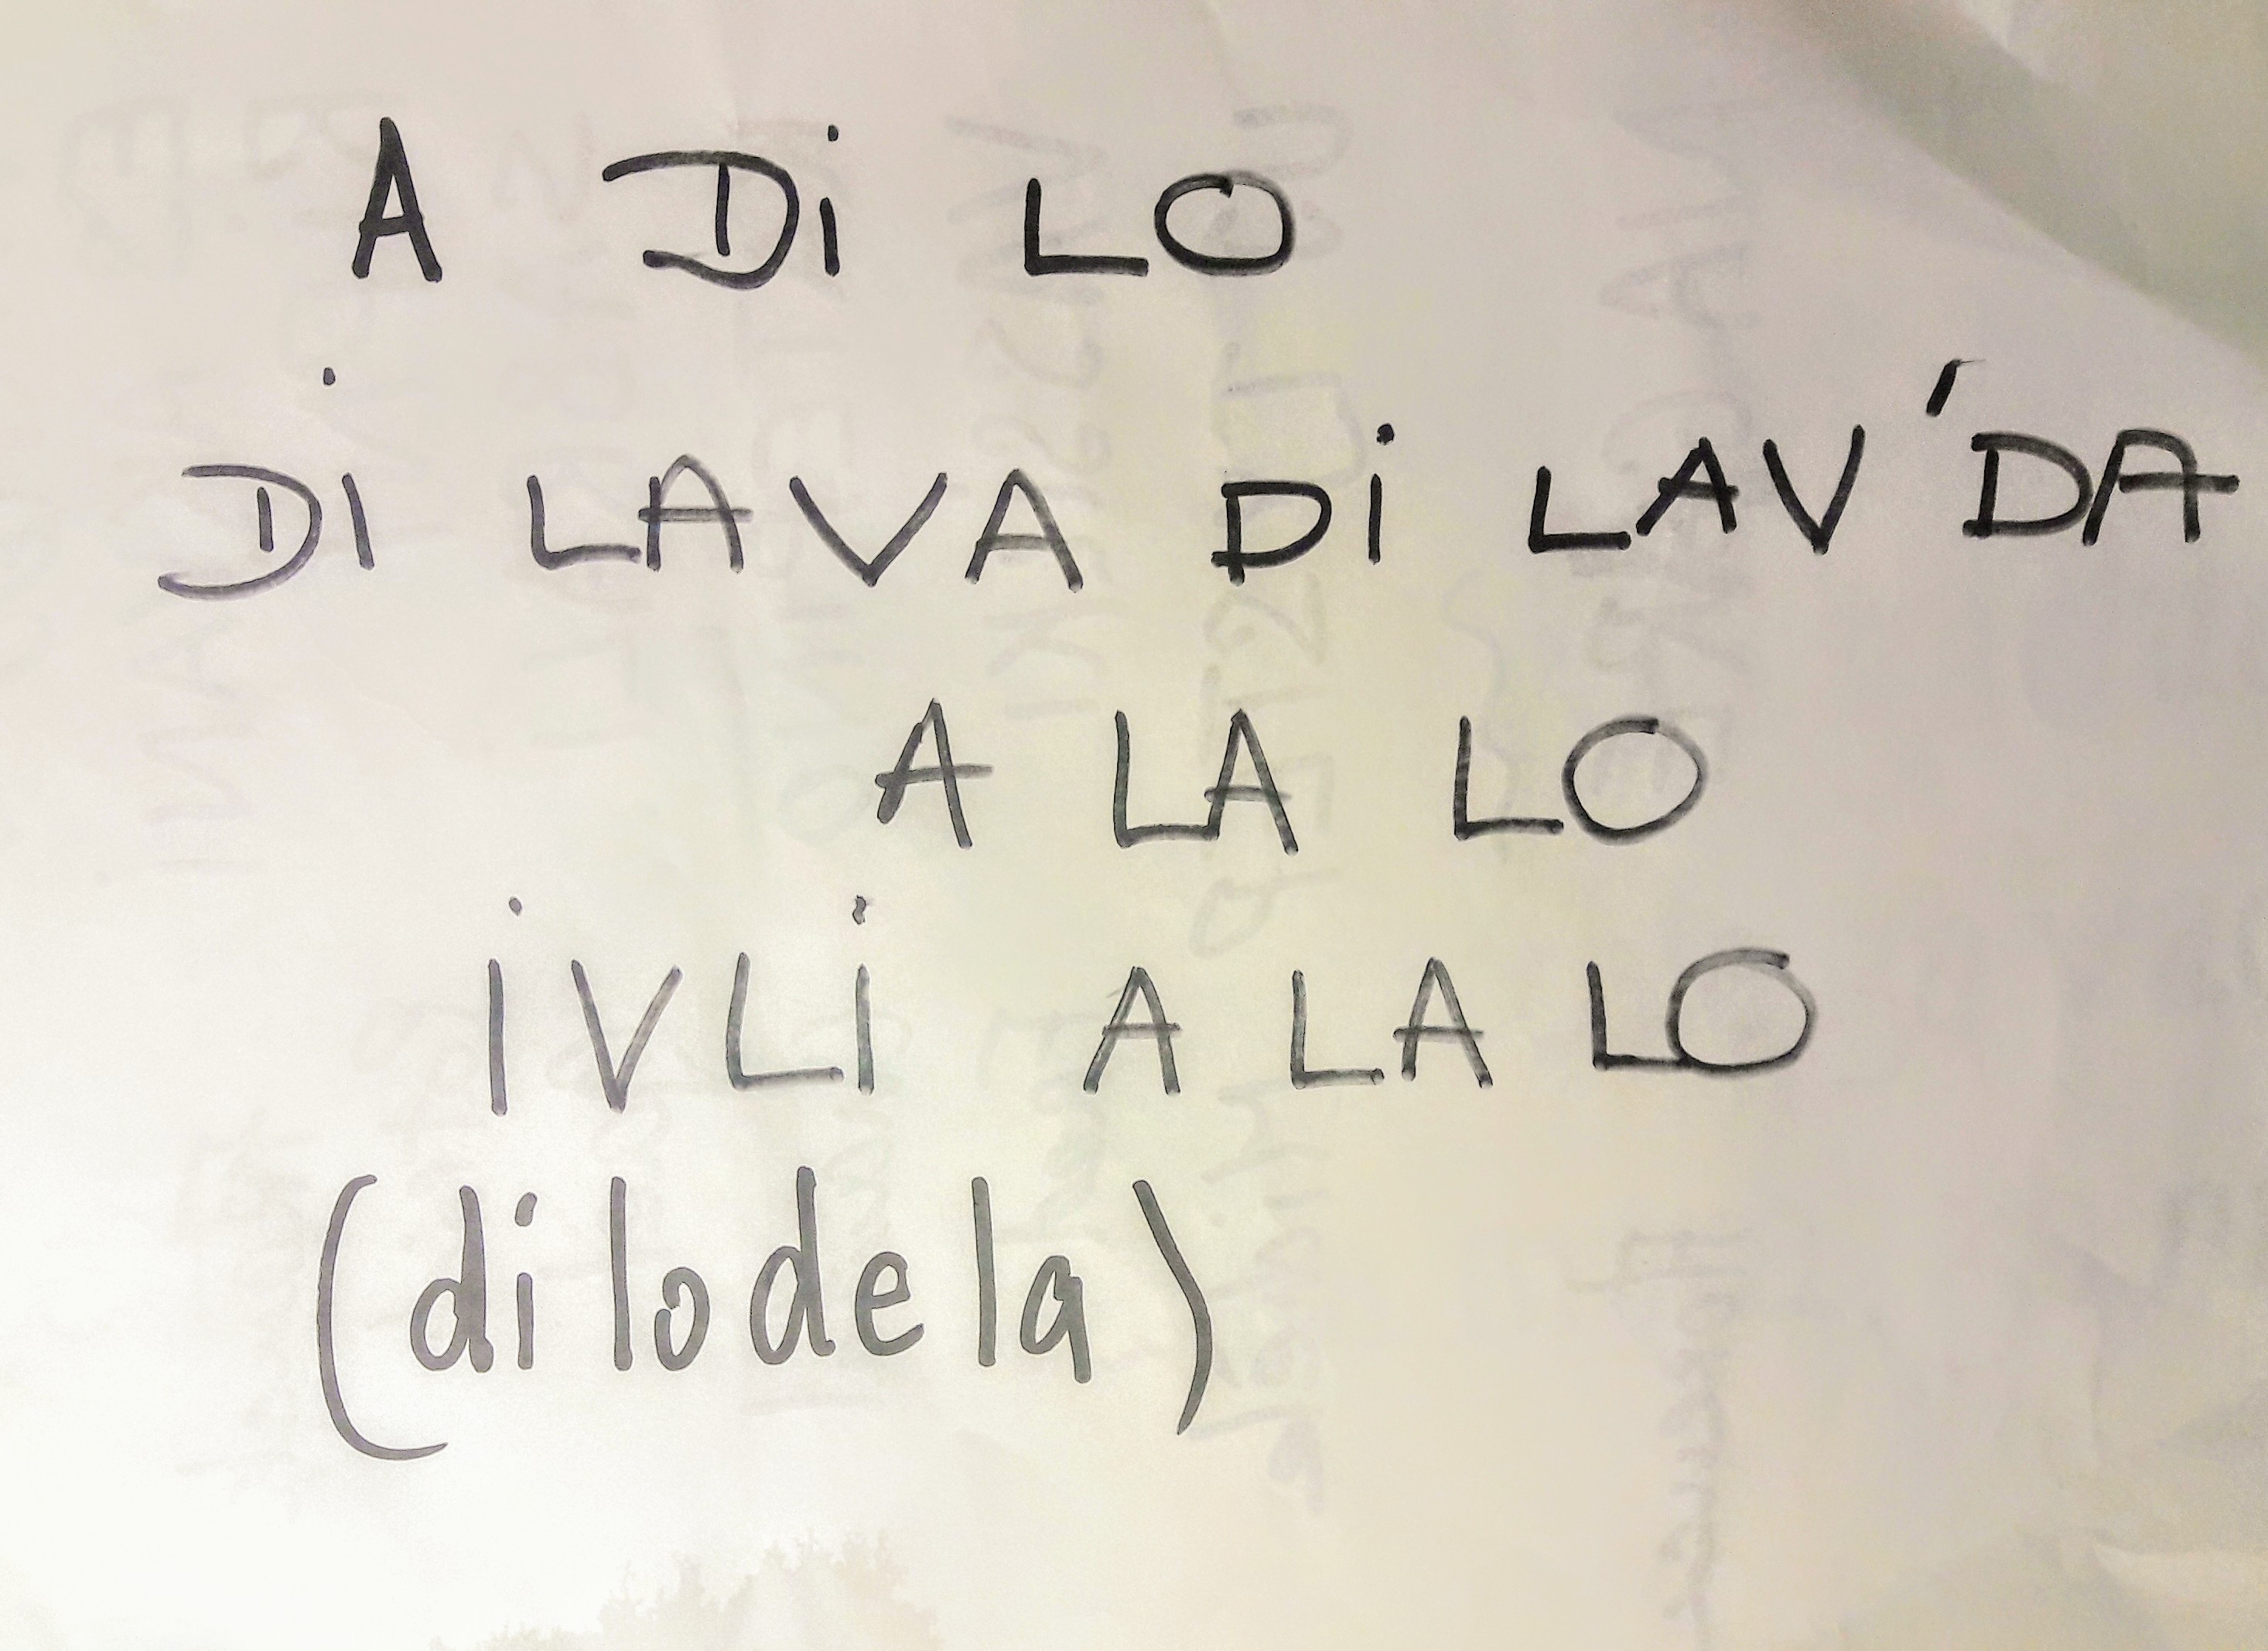 A Di LO
Di LAVA Di LAV'DA
A LA LO
iVLi A LA LO
(di lo de la)